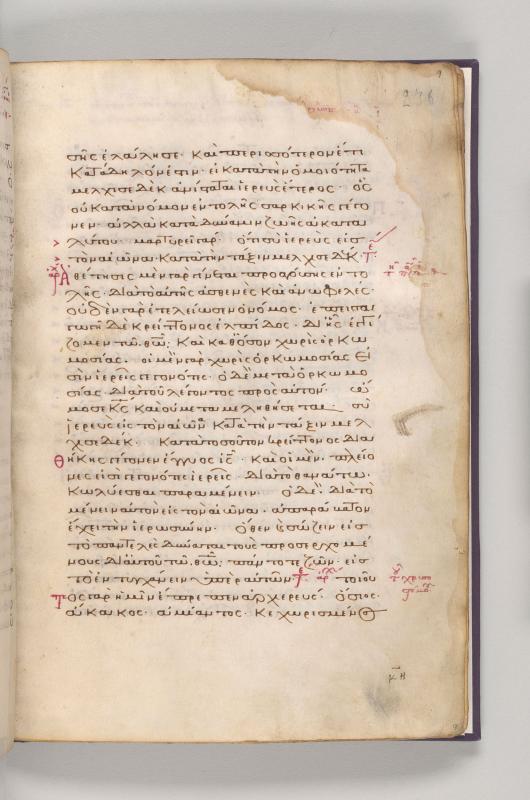 σῆς ἐλάλησε· Καὶ περισσότερον ἔτι
κατάδηλόν ἐστιν· εἰ κατὰ τὴν ὁμοιότητα
μελχισεδὲκ ἀνίσταται ἱερεὺς ἕτερος· ὃς
οὐ κατὰ νόμον ἐντολῆς σαρκικῆς γέγο
νεν· ἀλλὰ κατὰ δύναμιν ζωῆς ἀκατα
λύτου· μαρτυρεῖ γὰρ· ὅτι σὺ ἱερεὺς εἰς
τὸν αἰῶνα· κατὰ τὴν τάξιν μελχισεδέκ·
Ἀθέτησις μὲν γὰρ γίνεται προαγούσης ἐντο
λῆς· διὰ τὸ αὐτῆς ἀσθενὲς καὶ ἀνωφελές·
οὐδὲν γὰρ ἐτελείωσεν ὁ νόμος· ἐπεισαγ
ωγὴ δὲ κρείττονος ἐλπίδος· δι' ἧς ἐγγί
ζομεν τῷ θῶ· Καὶ καθ' ὅσον χωρὶς ὁρκω
μοσίας· οἱ μὲν γὰρ χωρὶς ὁρκωμοσίας εἰ
σὶν ἱερεῖς γεγονότες· ὁ δὲ μετὰ ὁρκωμο
σίας· διὰ τοῦ λέγοντος πρὸς αὐτόν· ὤ
μοσε κς καὶ οὐ μεταμεληθήσεται· σὺ
ἱερεὺς εἰς τὸν αἰῶνα κατὰ τὴν τάξιν μελ
χισεδέκ· κατὰ τοσοῦτον κρείττονος δια
θήκης γέγονεν ἔγγυος ις· Καὶ οἱ μὲν πλείο
νές εἰσι γεγονότες ἱερεῖς· διὰ τὸ θανάτω
κωλύεσθαι παραμένειν· ὁ δὲ· διὰ τὸ
μένειν αὐτὸν εἰς τὸν αἰῶνα· ἀπαράβατον
ἔχει τὴν ἱερωσύνην· ὅθεν καὶ σώζειν εἰς
τὸ παντελὲς δύναται τοὺς προσερχομέ
νους δι' αὐτοῦ τῷ θῶ· πάντοτε ζῶν· εἰς
τὸ ἐντυγχάνειν ὑπὲρ αὐτῶν· τοιοῦ
τος γὰρ ἡμῖν ἔπρεπεν ἀρχιερεύς· ὅσιος·
ἄκακος· ἀμίαντος· κεχωρισμένος
κη